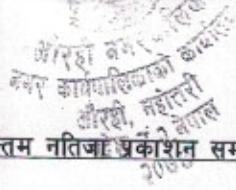 औरही नगरपालिका
नगर कार्यपालिकाको कार्यालय
औरही, महोत्तरी
नेपाल
तम नतिजा प्रकाशन सम